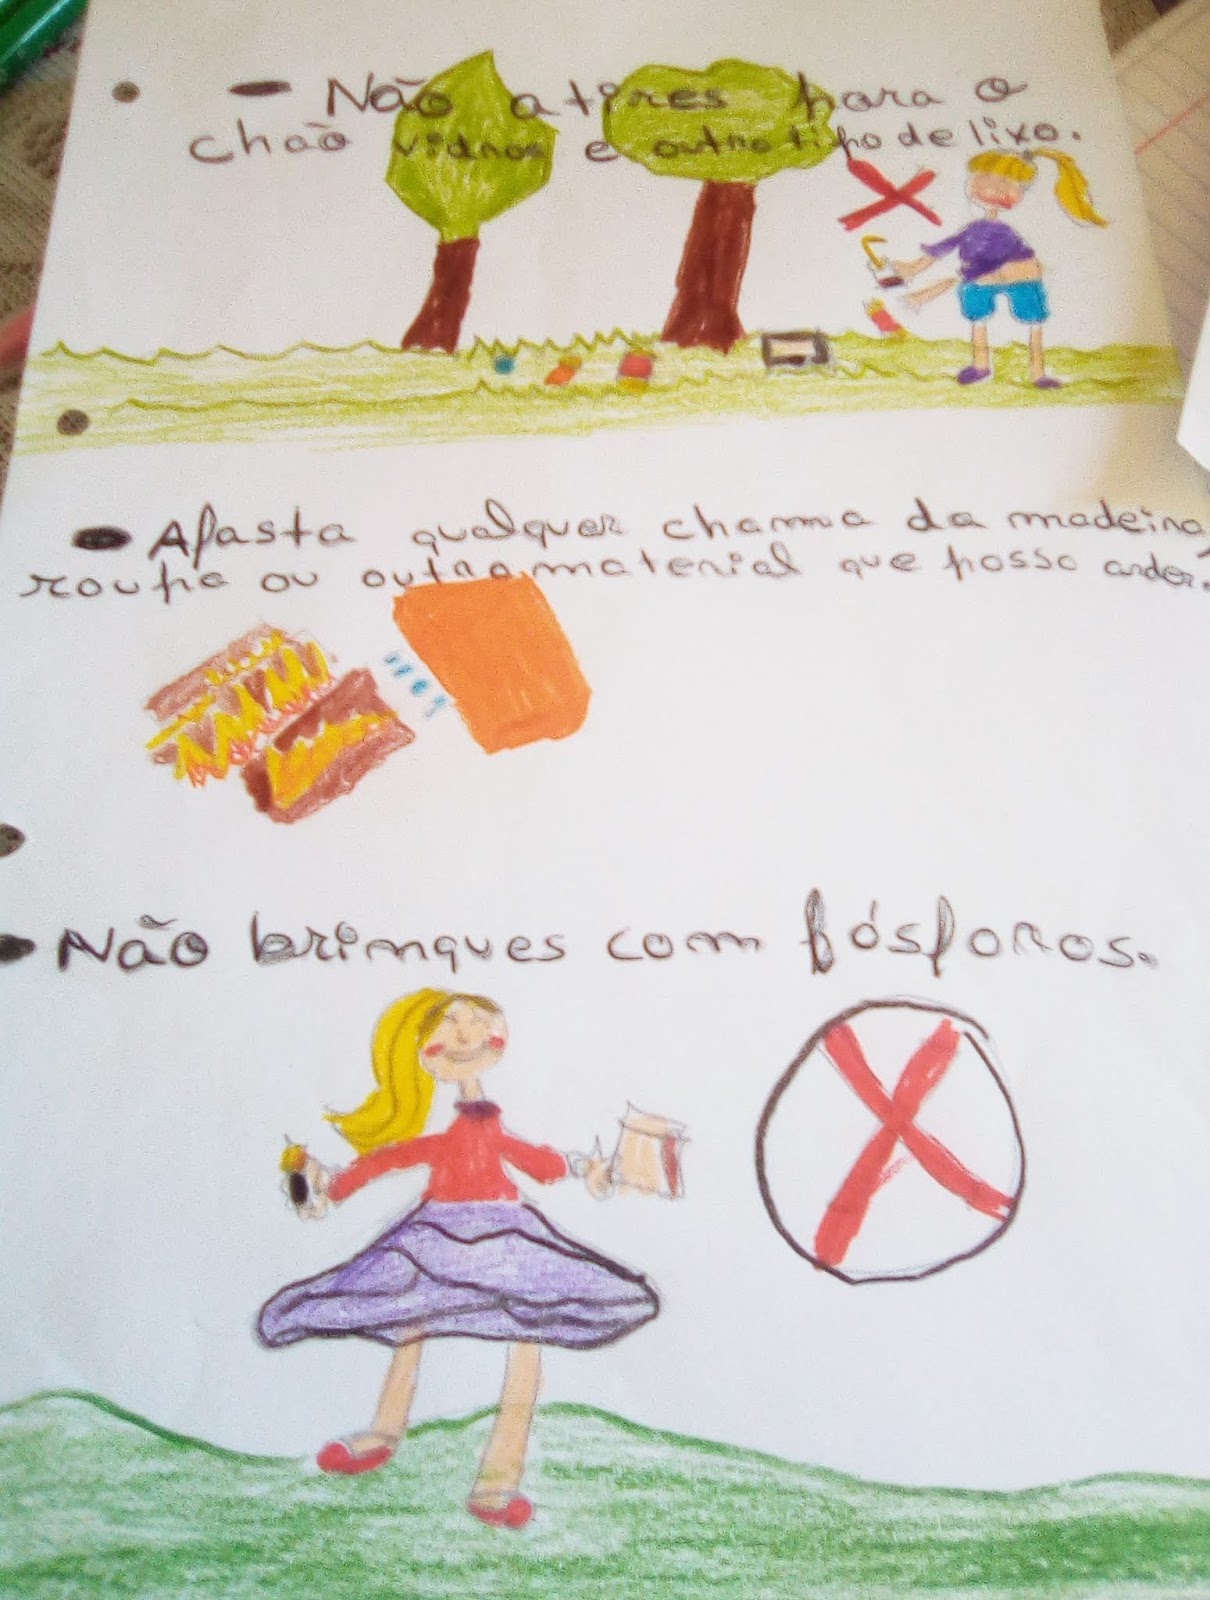 - Não atires para o
chão vidros e outro tipo de lixo.
- Afasta qualquer chama da madeira,
roupa ou outro material que possa arder.
- Não brinques com fósforos.